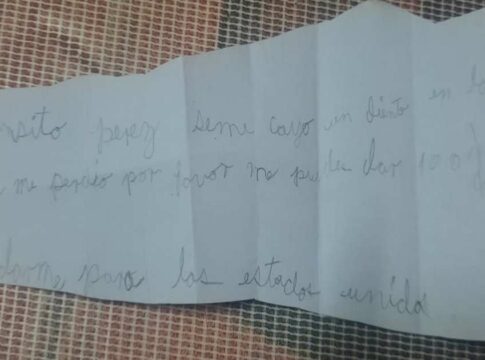 nsito perez seme cayo un diente en la
me perdio por favor me pueden dar 100
darme para los estados unida